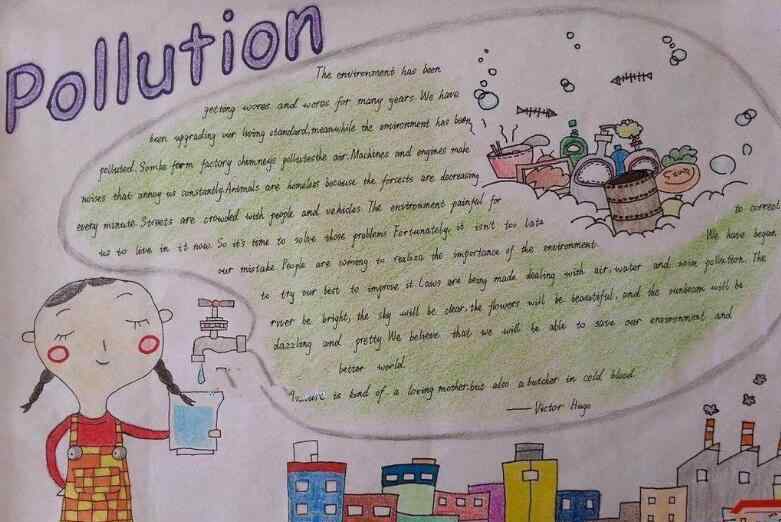 Pollution
The environment has been
getting wores and wores for many years. We have
been upgrading our living standard, meanwhile the environment has been
polluted. Sombe form factory chimneys pollutes the air. Machines and engines make
noises that annoy us constantly. Animals are homeless because the forsects are decreasing
every minute. Streets are crowded with people and vehicles. The environment painful for
us to live in it now. So it's time to solve those problems Fortunately, it isn't too late to correct
our mistake. People are coming to realiza the importance of the environment. We have began
to try our best to improve it. Laws are being made dealing with air, water and noise pollution. The
river be bright, the sky will be clear, the flowers will be beautiful, and the sunbeam will be
dazzling and pretty. We believe that we will be able to save our environment and
better world.
is kind of a loving mother, but also a butcher in cold blood
—— Victor Hugo